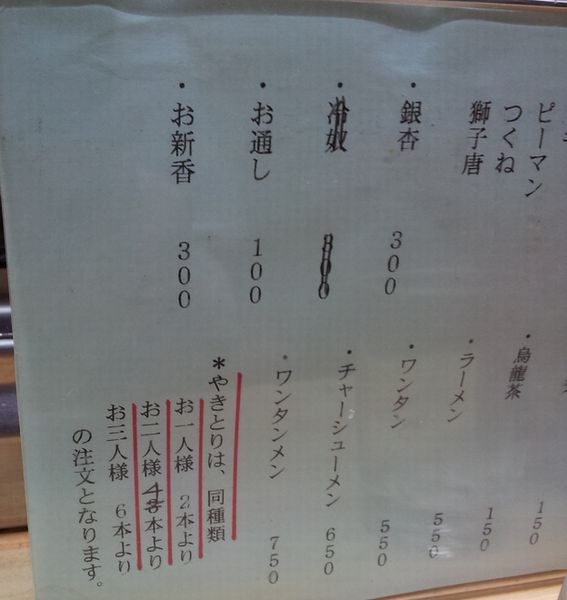 ピーマン
つくね
獅子唐
・銀杏 300
・冷奴 300
・お通し 100
・お新香 300
150
・烏龍茶 150
・ラーメン 550
・ワンタン 550
・チャーシューメン 650
・ワンタンメン 750
*やきとりは、同種類
お一人様 2本より
お二人様 4本より
お三人様 6本より
の注文となります。